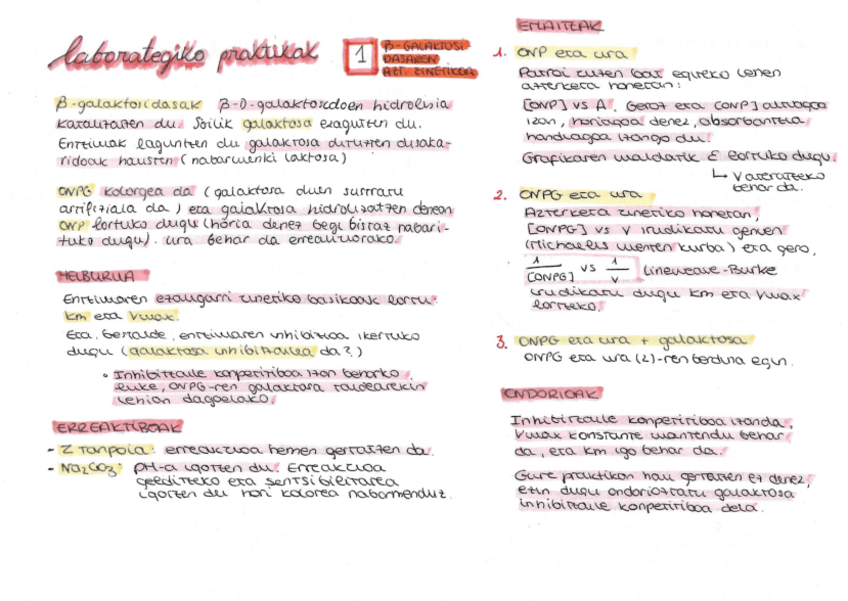 laborategiko praktikak
1
β-GALAKTOSI
DASAREN
AZT. ZINETIKOA
β-galaktosidasak β-D-galaktosidoen hidrolisia
katalizatzen du. Soilik galaktosa ezagutzen du.
Entzimak laguntzen du galaktosa dutuzten disaka-
ridoak hausten (nabarmenki laktosa)
ONPG kolorgea da (galaktosa duen sustratu
artifiziala da) eta galaktosa hidrolizatzen denean
ONP lortuko dugu (horia denez begi bistaz nabari-
tuko dugu). Ura behar da erreakziorako.
HELBURUA
Entzimaren ezaugarri zinetiko basikoak lortu:
Km eta Vmax.
Eta, bestalde, entzimaren inhibizioa ikertuko
dugu (galaktosa inhibitzailea da?)
• Inhibitzaile konpetitiboa izan beharko
luke, ONPG-ren galaktosa taldearekin
lehian dagoelako.
ERREAKTIBOAK
- Z tanpoia: erreakzioa hemen gertatzen da.
- Na2CO3: pH-a igotzen du. Erreakzioa
gelditzeko eta sentsibilitatea
igotzen du hori kolorea nabarmenduz.
EMAITZAK
1. ONP eta ura
Patroi zuzen bat egiteko lehen
azterketa honetan:
[ONP] vs A. Gero eta [ONP] altuagoa
izan, horiagoa denez, absorbantzia
handiagoa izango du.
Grafikaren maldatik Ɛ lortuko dugu.
↳ V ateratzeko
behar da.
2. ONPG eta ura
Azterketa zinetiko honetan,
[ONPG] vs V irudikatu genuen
(Michaelis Menten kurba) eta gero,
1/[ONPG] vs 1/V Lineweave-Burke
irudikatu dugu Km eta Vmax
lortzeko.
3. ONPG eta ura + galaktosa
ONPG eta ura (2)-ren berdina egin.
ONDORIOAK
Inhibitzaile konpetitiboa izanda,
Vmax konstante mantendu behar
da, eta Km igo behar da.
Gure praktikan hau gertatzen ez denez,
ezin dugu ondorioztatu galaktosa
inhibitzaile konpetitiboa dela.